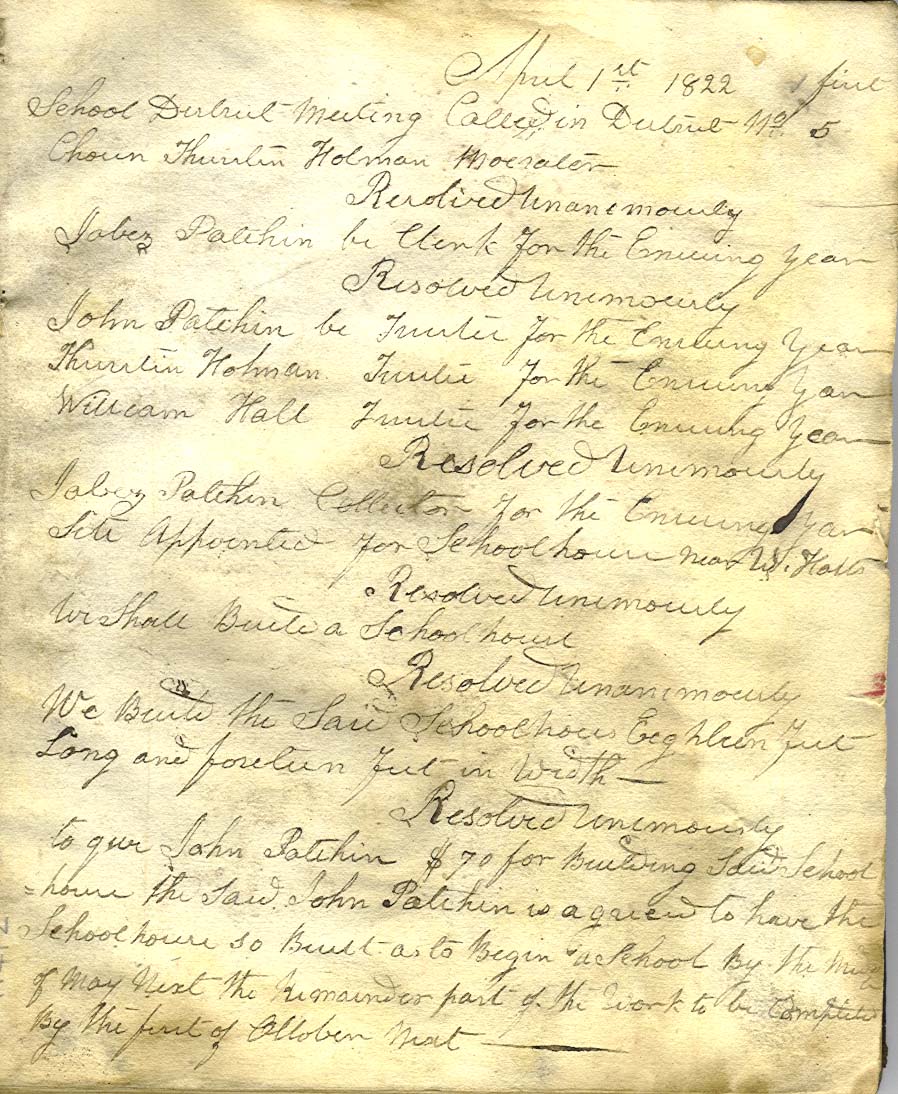 April 1st 1822 first
School District Meeting Called in District No. 5
Chosen Thurstin Holman Moerator
Resolved Unanemously
Jabez Patchin be Clerk for the Ensuing year
Resolved Unimously
John Patchin be Trustee for the Ensuing Year
Thurstin Holman Trustee for the Ensuing Year
William Hall Trustee for the Ensuing Year
Resolved Unimously
Jabez Patchin Collector for the Ensuing Year
Site Appointed for Schoolhouse near W. Halls
Resolved Unimously
We Shall Build a Schoolhouse
Resolved Unanimously
We Build the Said Schoolhous Eeghteen feet
Long and foreteen feet in Width
Resolved Unimously
to give John Patchin $70 for Building Said School
=house the Said John Patchin is agreed to have the
Schoolhouse so Built as to Begin a School By the
of May Next the Remainder part of the Work to be Completed
By the first of Octtober Next